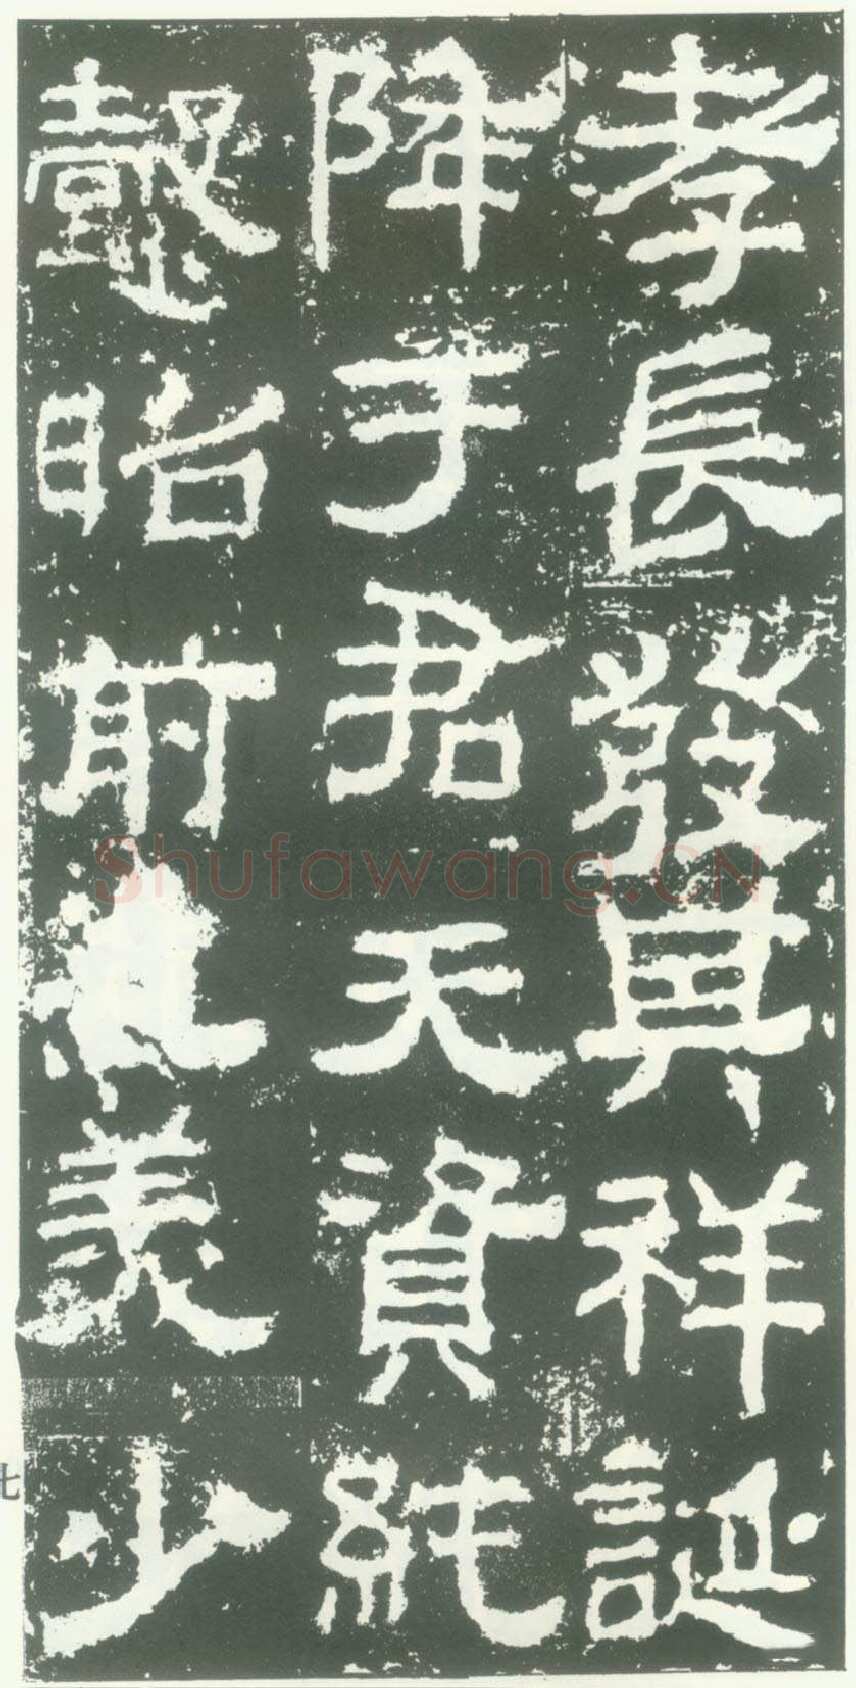 孝長發其祥誕
降于君天資純
懿昭前美少
Shufawang.CN